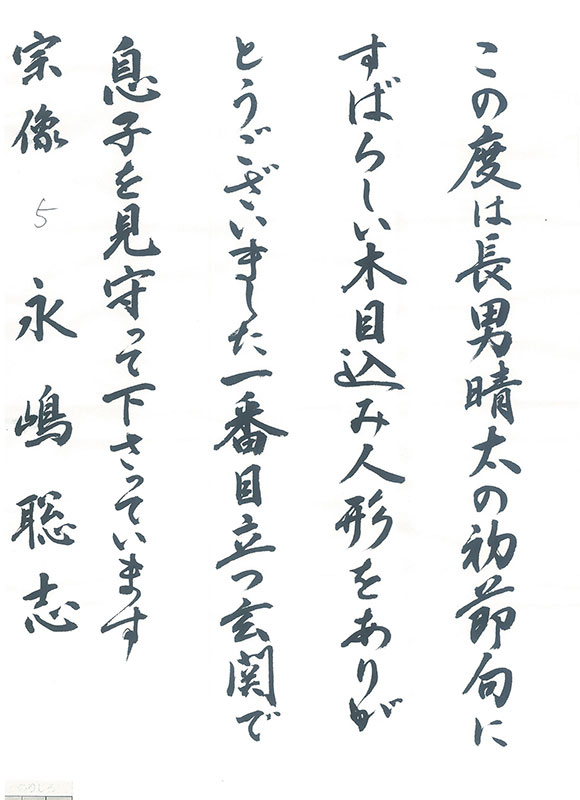 この度は長男晴太の初節句に
すばらしい木目込み人形をありが
とうございました一番目立つ玄関で
息子を見守って下さっています
宗像 5 永嶋聡志
のりしろ